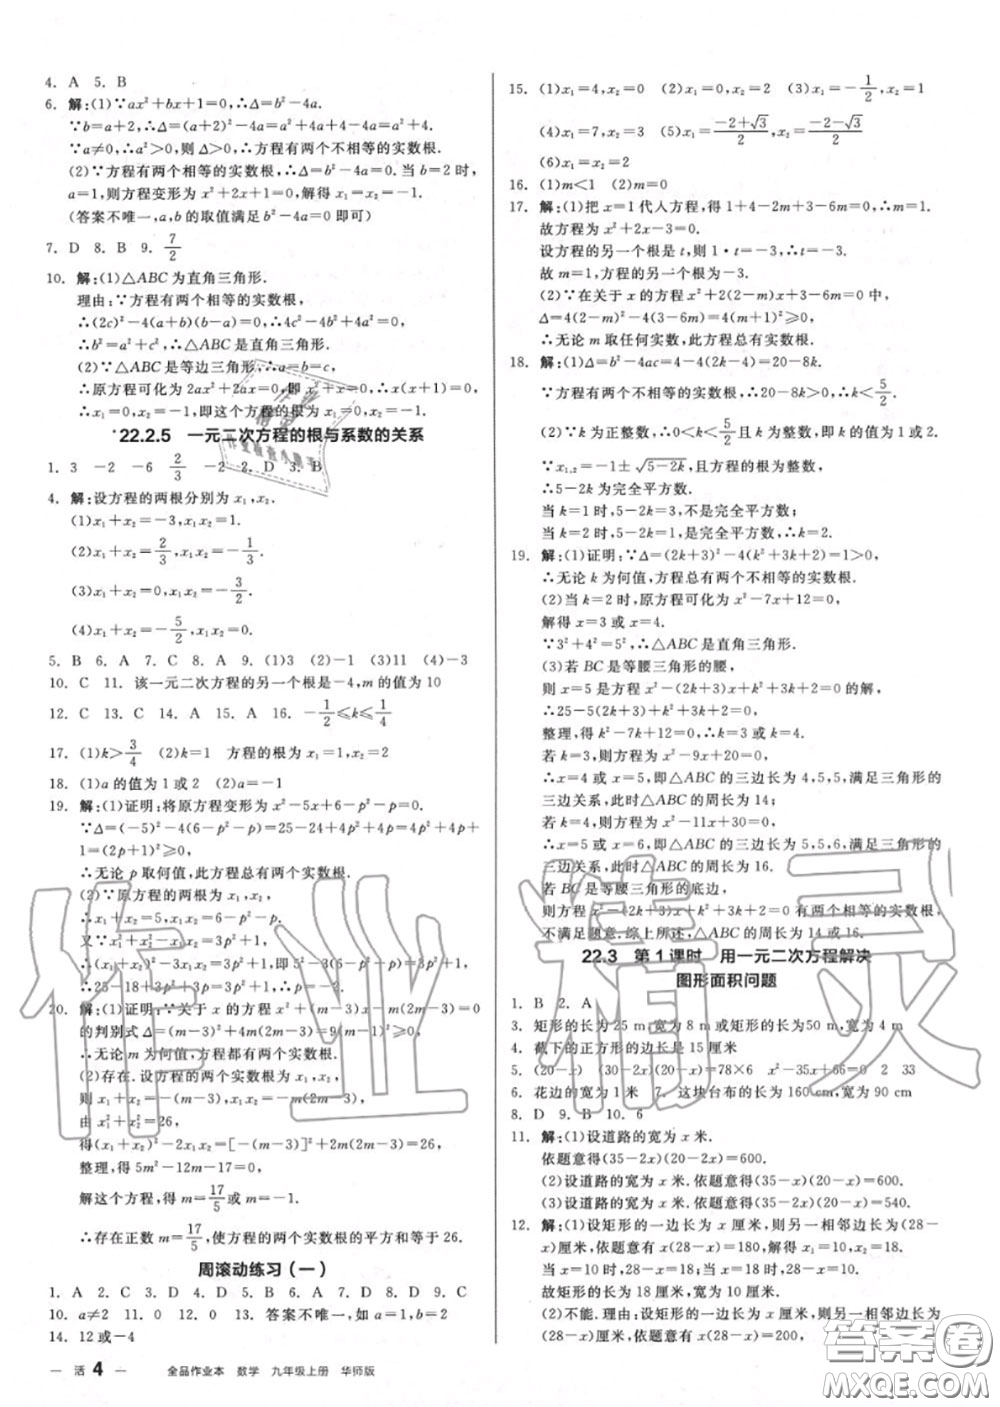 4. A 5. B
6. 解:(1)∵ax²+bx+1=0,∴Δ=b²-4a.
∵b=a+2,∴Δ=(a+2)²-4a=a²+4a+4-4a=a²+4.
∵a≠0,∴a²>0,则Δ>0,∴方程有两个不相等的实数根.
(2)∵方程有两个相等的实数根,∴Δ=b²-4a=0.当b=2时,
a=1,则方程变形为x²+2x+1=0,解得x₁=x₂=-1.
(答案不唯一,a,b的取值满足b²-4a=0即可)
7. D 8. B 9. 7/2
10. 解:(1)△ABC为直角三角形.
理由:∵方程有两个相等的实数根,
∴(2c)²-4(a+b)(a-b)=0,∴4c²-4a²+4b²=0,
∴b²=a²+c²,∴△ABC是直角三角形.
(2)∵△ABC是等边三角形,∴a=b=c,
∴原方程可化为2ax²+2ax=0,即x²+x=0,∴x(x+1)=0,
∴x₁=0,x₂=-1,即这个方程的根为x₁=0,x₂=-1.
*22.2.5 一元二次方程的根与系数的关系
1. 3 -2 -6 2/3 -2 2. D 3. B
4. 解:设方程的两根分别为x₁,x₂.
(1)x₁+x₂=-3,x₁x₂=1.
(2)x₁+x₂=2/3,x₁x₂=-2/3.
(3)x₁+x₂=0,x₁x₂=-3/2.
(4)x₁+x₂=-5/2,x₁x₂=0.
5. B 6. A 7. C 8. A 9. (1)3 (2)-1 (3)11 (4)-3
10. C 11. 该一元二次方程的另一个根是-4,m的值为10
12. C 13. C 14. A 15. A 16. -1/2≤k≤1/4
17. (1)k>3/4 (2)k=1 方程的根为x₁=1,x₂=1
18. (1)a的值为1或2 (2)a=-1
19. 解:(1)证明:将原方程变形为x²-5x+6-p²-p=0.
∵Δ=(-5)²-4(6-p²-p)=25-24+4p²+4p=4p²+4p+1
=(2p+1)²≥0,
∴无论p取何值,此方程总有两个实数根.
(2)∵原方程的两根为x₁,x₂,
∴x₁+x₂=5,x₁x₂=6-p²-p.
又∵x₁²+x₂²-x₁x₂=3p²+1,
∴(x₁+x₂)²-3x₁x₂=3p²+1,
∴25-18+3p²+3p=3p²+1,∴p=-2.
20. 解:(1)证明:∵关于x的方程x²-(m-3)x-m(2m-3)=0
的判别式Δ=(m-3)²+4m(2m-3)=9(m-1)²≥0,
∴无论m为何值,方程都有两个实数根.
(2)存在.设方程的两个实数根为x₁,x₂,
则x₁+x₂=m-3,x₁x₂=-m(2m-3).
由x₁²+x₂²=26,
得(x₁+x₂)²-2x₁x₂=[-(m-3)]²+2m(2m-3)=26,
整理,得5m²-12m-17=0,
解这个方程,得m=17/5或m=-1.
∴存在正数m=17/5,使方程的两个实数根的平方和等于26.
周滚动练习(一)
1. A 2. D 3. A 4. D 5. A 6. A 7. B 8. D 9. C
10. a≠2 11. 0 12. 0 13. 答案不唯一,如a=1,b=2
14. 12或-4
15. (1)x₁=4,x₂=0 (2)x₁=0,x₂=2 (3)x₁=x₂=-1/2
(4)x₁=7,x₂=3 (5)x₁=(-2+√3)/2,x₂=(-2-√3)/2
(6)x₁=x₂=1
16. (1)m<1 (2)m=0
17. 解:(1)把x=1代人方程,得1+4-2m+3-6m=0,∴m=1.
故方程为x²+2x-3=0.
设方程的另一个根是t,则1·t=-3,∴t=-3.
故m=1,方程的另一个根为-3.
(2)∵在关于x的方程x²+2(2-m)x+3-6m=0中,
Δ=4(2-m)²-4(3-6m)=4(m+1)²≥0,
∴无论m取任何实数,此方程总有实数根.
18. 解:(1)Δ=b²-4ac=4-4(2k-4)=20-8k.
∵方程有两个不相等的实数根,∴20-8k>0,∴k<5/2.
(2)∵k为正整数,∴0<k<5/2(且k为整数),即k的值为1或2.
∵x₁,₂=-1±√(5-2k),且方程的根为整数,
∴5-2k为完全平方数.
当k=1时,5-2k=3,不是完全平方数;
当k=2时,5-2k=1,是完全平方数,∴k=2.
19. 解:(1)证明:∵Δ=(2k+3)²-4(k²+3k+2)=1>0,
∴无论k为何值,方程总有两个不相等的实数根.
(2)当k=2时,原方程可化为x²-7x+12=0,
解得x=3或x=4.
∵3²+4²=5²,∴△ABC是直角三角形.
(3)若BC是等腰三角形的腰,
则x=5是方程x²-(2k+3)x+k²+3k+2=0的根,
∴25-5(2k+3)+k²+3k+2=0,
整理,得k²-7k+12=0,∴k=3或k=4.
若k=3,则方程为x²-9x+20=0,
∴x=4或x=5,即△ABC的三边长为4,5,5,满足三角形的
三边关系,此时△ABC的周长为14;
若k=4,则方程为x²-11x+30=0,
∴x=5或x=6,即△ABC的三边长为5,5,6,满足三角形的
三边关系,此时△ABC的周长为16.
若BC是等腰三角形的底边,
则方程x²-(2k+3)x+k²+3k+2=0有两个相等的实数根,
不满足题意.综上所述,△ABC的周长为14或16.
22.3 第1课时 用一元二次方程解决
图形面积问题
1. B 2. A
3. 矩形的长为25 m,宽为8 m或矩形的长为50 m,宽为4 m
4. 截下的正方形的边长是15厘米
5. (20-x) (30-2x)(20-x)=78×6 x²-35x+66=0 2 33
6. 花边的宽为1米 7. 这块台布的长为160 cm,宽为90 cm
8. D 9. B 10. 6
11. 解:(1)设道路的宽为x米.
依题意得(35-2x)(20-2x)=600.
(2)设道路的宽为x米.依题意得(35-x)(20-x)=600.
(3)设道路的宽为x米.依题意得(35-2x)(20-x)=540.
12. 解:(1)设矩形的一边长为x厘米,则另一相邻边长为(28-
x)厘米,依题意有x(28-x)=180,解得x₁=10,x₂=18.
当x=10时,28-x=18;当x=18时,28-x=10.
故矩形的长为18厘米,宽为10厘米.
(2)不能.理由:设矩形的一边长为x厘米,则另一相邻边长
为(28-x)厘米,依题意有x(28-x)=200,即x²-28x+
— 活 4 — 全品作业本 数学 九年级上册 华师版
作业精灵
答案圈
MXQE.COM